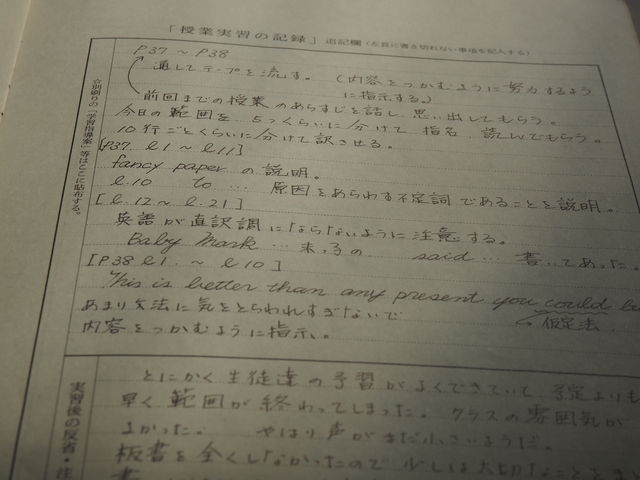 「授業実習の記録」追記欄（左頁に書き切れない事項を記入する）
P37 ～ P38
通してテープを流す。（内容をつかむように努力するよう
に指示する。）
前回までの授業のあらすじを話し、思い出してもらう。
今日の範囲を 5つくらいに分けて 指名、読んでもらう。
10行ごとくらいに分けて訳させる。
[P37 l1 ～ l11]
fancy paper の説明。
l.10 to … 原因をあらわす不定詞であることを説明。
[l.12 ～ l.21]
英語が直訳調にならないように注意する。
Baby Mark … 末っ子の said … 書いてあった。
[P38 l1. ～ l10]
This is better than any present you could
仮定法
あまり文法に気をとらわれすぎないで
内容をつかむように指示。
とにかく生徒達の予習がよくできていて、予定よりも
早く範囲が終わってしまった。クラスの雰囲気が
よかった。 やはり声がまだ小さいようだ。
板書を全くしなかったので少しは大切なことを
立別刷りの「学習指導案」等はここに貼布する。
実習後の反省・